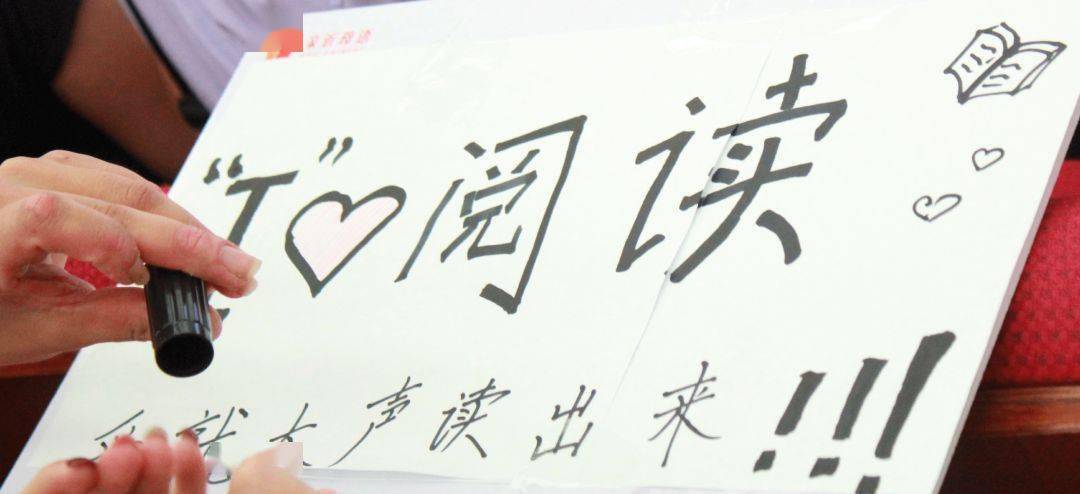 “I”♡阅读
就大声读出来!!!